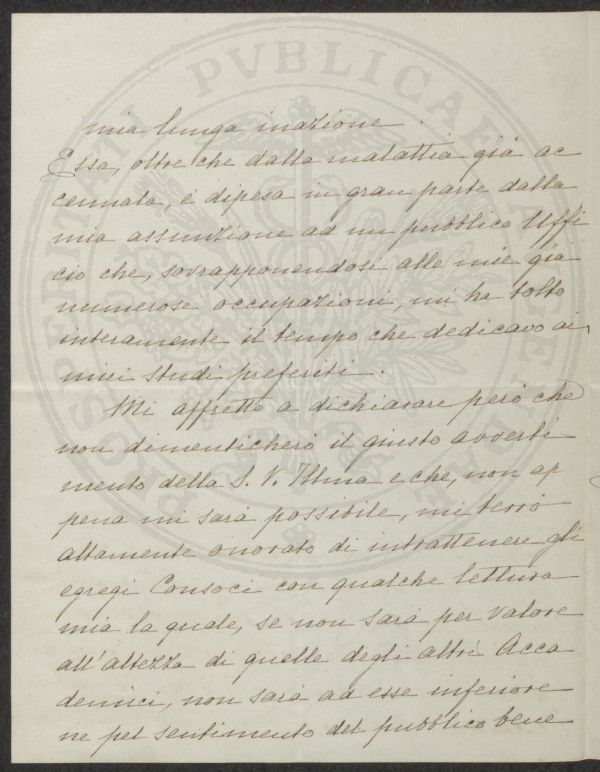 mia lunga inazione.
Essa, oltre che dalla malattia già ac
cennata, è dipesa in gran parte dalla
mia assunzione ad un pubblico Uffi
cio che, sovrapponendosi alle mie già
numerose occupazioni, mi ha tolto
interamente il tempo che dedicavo ai
miei studi preferiti.
Mi affretto a dichiarare però che
non dimenticherò il giusto avverti
mento della S. V. Illma e che, non ap
pena mi sarà possibile, mi terrò
altamente onorato di intrattenere gli
egregi Consoci con qualche lettura
mia la quale, se non sarà per valore
all'altezza di quelle degli altri Acca
demici, non sarà ad esse inferiore
nè pel sentimento del pubblico bene
PROSPERITATI PVBLICAE AVGENDAE